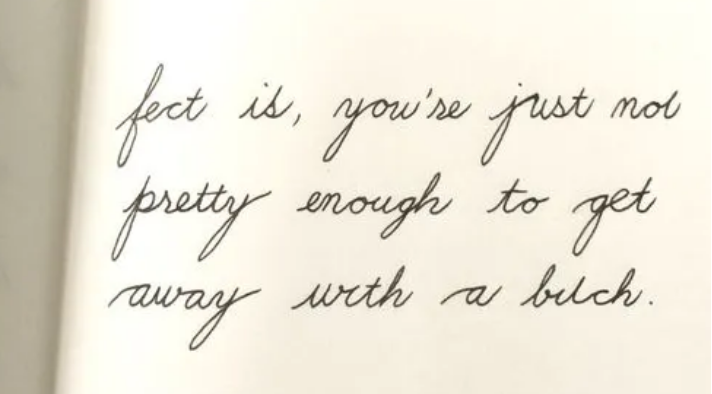 fect is, you're just not
pretty enough to get
away with a bitch.